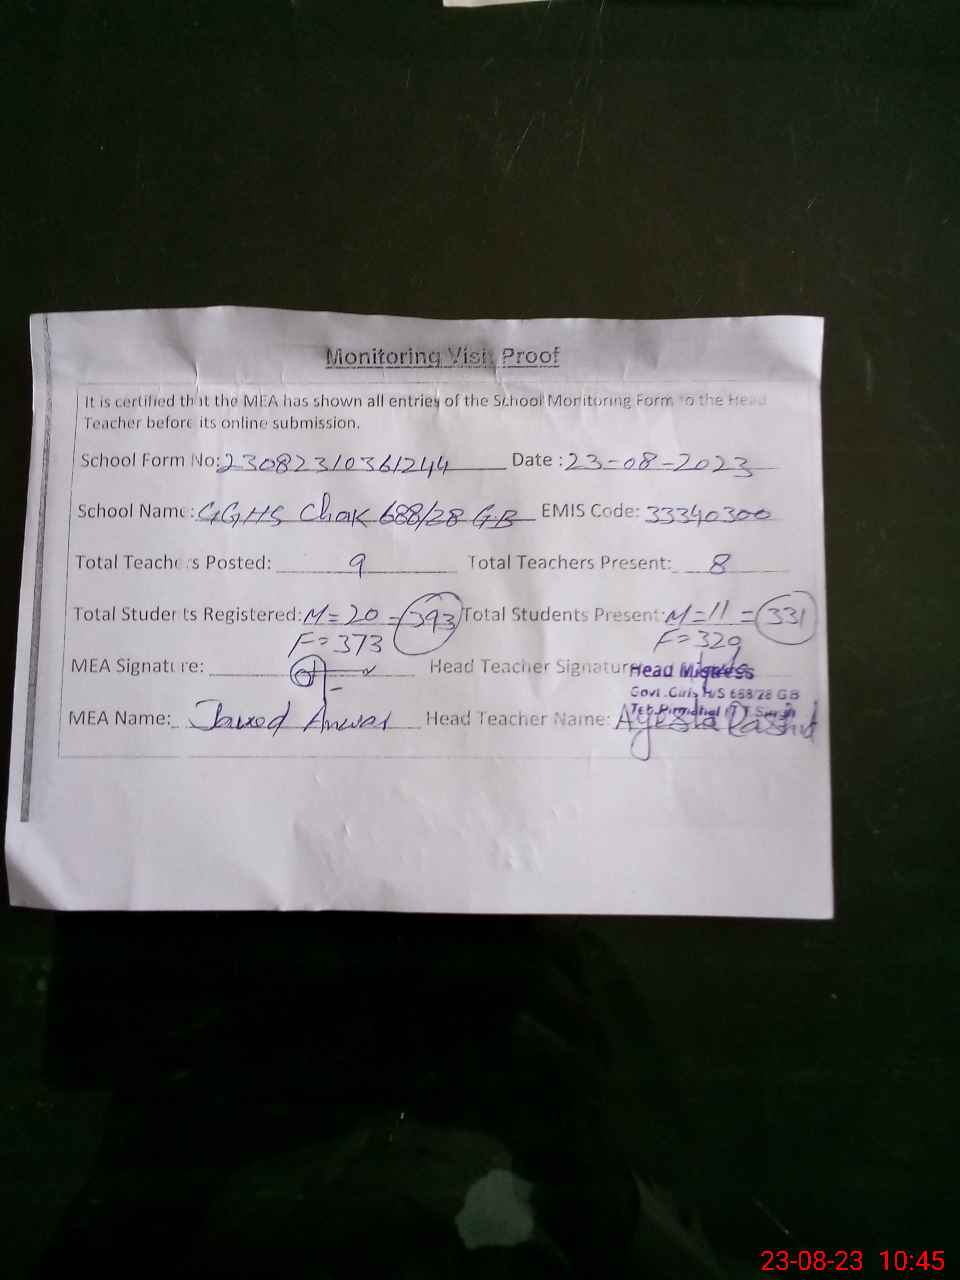 Monitoring Visit Proof
It is certified that the MEA has shown all entries of the School Monitoring Form to the Head
Teacher before its online submission.
School Form No: 23082310361244 Date : 23-08-2023
School Name: GGHS Chak 688/28 GB EMIS Code: 33340300
Total Teachers Posted: 9 Total Teachers Present: 8
Total Students Registered: M=20 = 393 Total Students Present: M=11 = 331
F=373 F=320
MEA Signature: Head Teacher Signature
Head Mistress
Govt. Girls H/S 688/28 GB
Teh. Pirmahal T.T.Singh
MEA Name: Javed Anwar Head Teacher Name: Ayesha Rashid
23-08-23 10:45